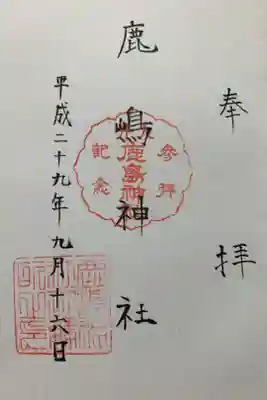 奉拝
鹿嶋神社
参拝
鹿島神
記念
平成二十九年九月十六日